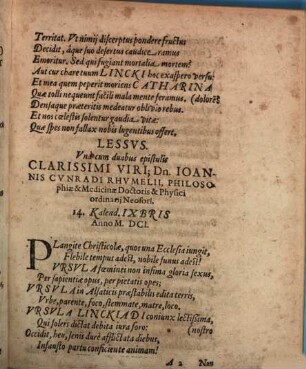 Territat. Ut nimij discerptus pondere fructus
Decidit, àque suo desertus caudice ramus
Emoritur. Sed qui fugiant mortalia mortem?
Aut cur chare tuum LINCKI hoc exaspero versu:
Et mea quem peperit moriens CATHARINA (dolorẽ?
Quæ tolli nequeunt facili mala mente feramus,
Densaque præteritis medeatur oblivio rebus.
Et nos cœlestis solentur gaudia vitæ:
Quæ spes non fallax nobis lugentibus offert.
LESSVS.
Unà cum duabus epistulis
CLARISSIMI VIRI; Dn. IOAN-
NIS CVNRADI RHVMELII, PHILOSO-
phiæ & Medicinæ Doctoris & Physici
ordinarij Neoforî.
14. Kalend. IXBRIS
Anno M. DCI.
PLangite Christicolæ, quot una Ecclesia iungit,
Flebile tempus adest, nobile funus adest!
VRSVLA fæminei non infima gloria sexus,
Per sapientiæ opus, per pietatis opes;
VRSVLA in Alsatiis præstabilis edita terris,
Vrbe, parente, foco, stemmate, matre, loco.
VRSVLA LINCKIADI coniunx lectissima,
Qui soleri dictat debita iura foro: (nostro
Occidit, heu, senis durè afflictata diebus,
Infausto partu conficiente animam!
A 2 Non